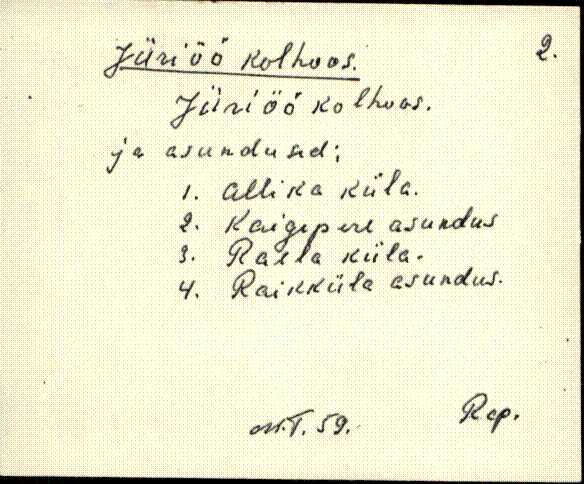 2.
Jüriöö kolhoos.
Jüriöö kolhoos.
ja asundused:
1. Allika küla.
2. Kaigepere asundus
3. Raela küla.
4. Raikküla asundus.
M.T. 59. Rap.